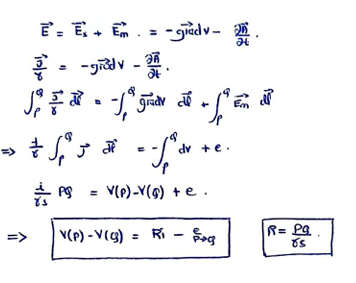 E⃗ = E⃗s + E⃗m . = -g⃗rad v - ∂A⃗/∂t .
J⃗/γ = -g⃗rad v - ∂A⃗/∂t .
∫_P^Q J⃗/γ dl⃗ = -∫_P^Q g⃗rad v dl⃗ + ∫_P^Q E⃗m dl⃗
=> 1/γ ∫_P^Q J⃗ dl⃗ = -∫_P^Q dv + e .
i/γs PQ = V(P)-V(Q) + e .
=> V(P)-V(Q) = Ri - e P→Q R = PQ/γs .